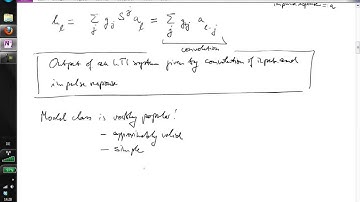 impulse response = a
h_l = Σ_j g_j S^j a_l = Σ_j g_j a_{l-j}
convolution
Output of an LTI system given by convolution of input and
impulse response
Model class is wildly popular!
– approximately valid
– simple